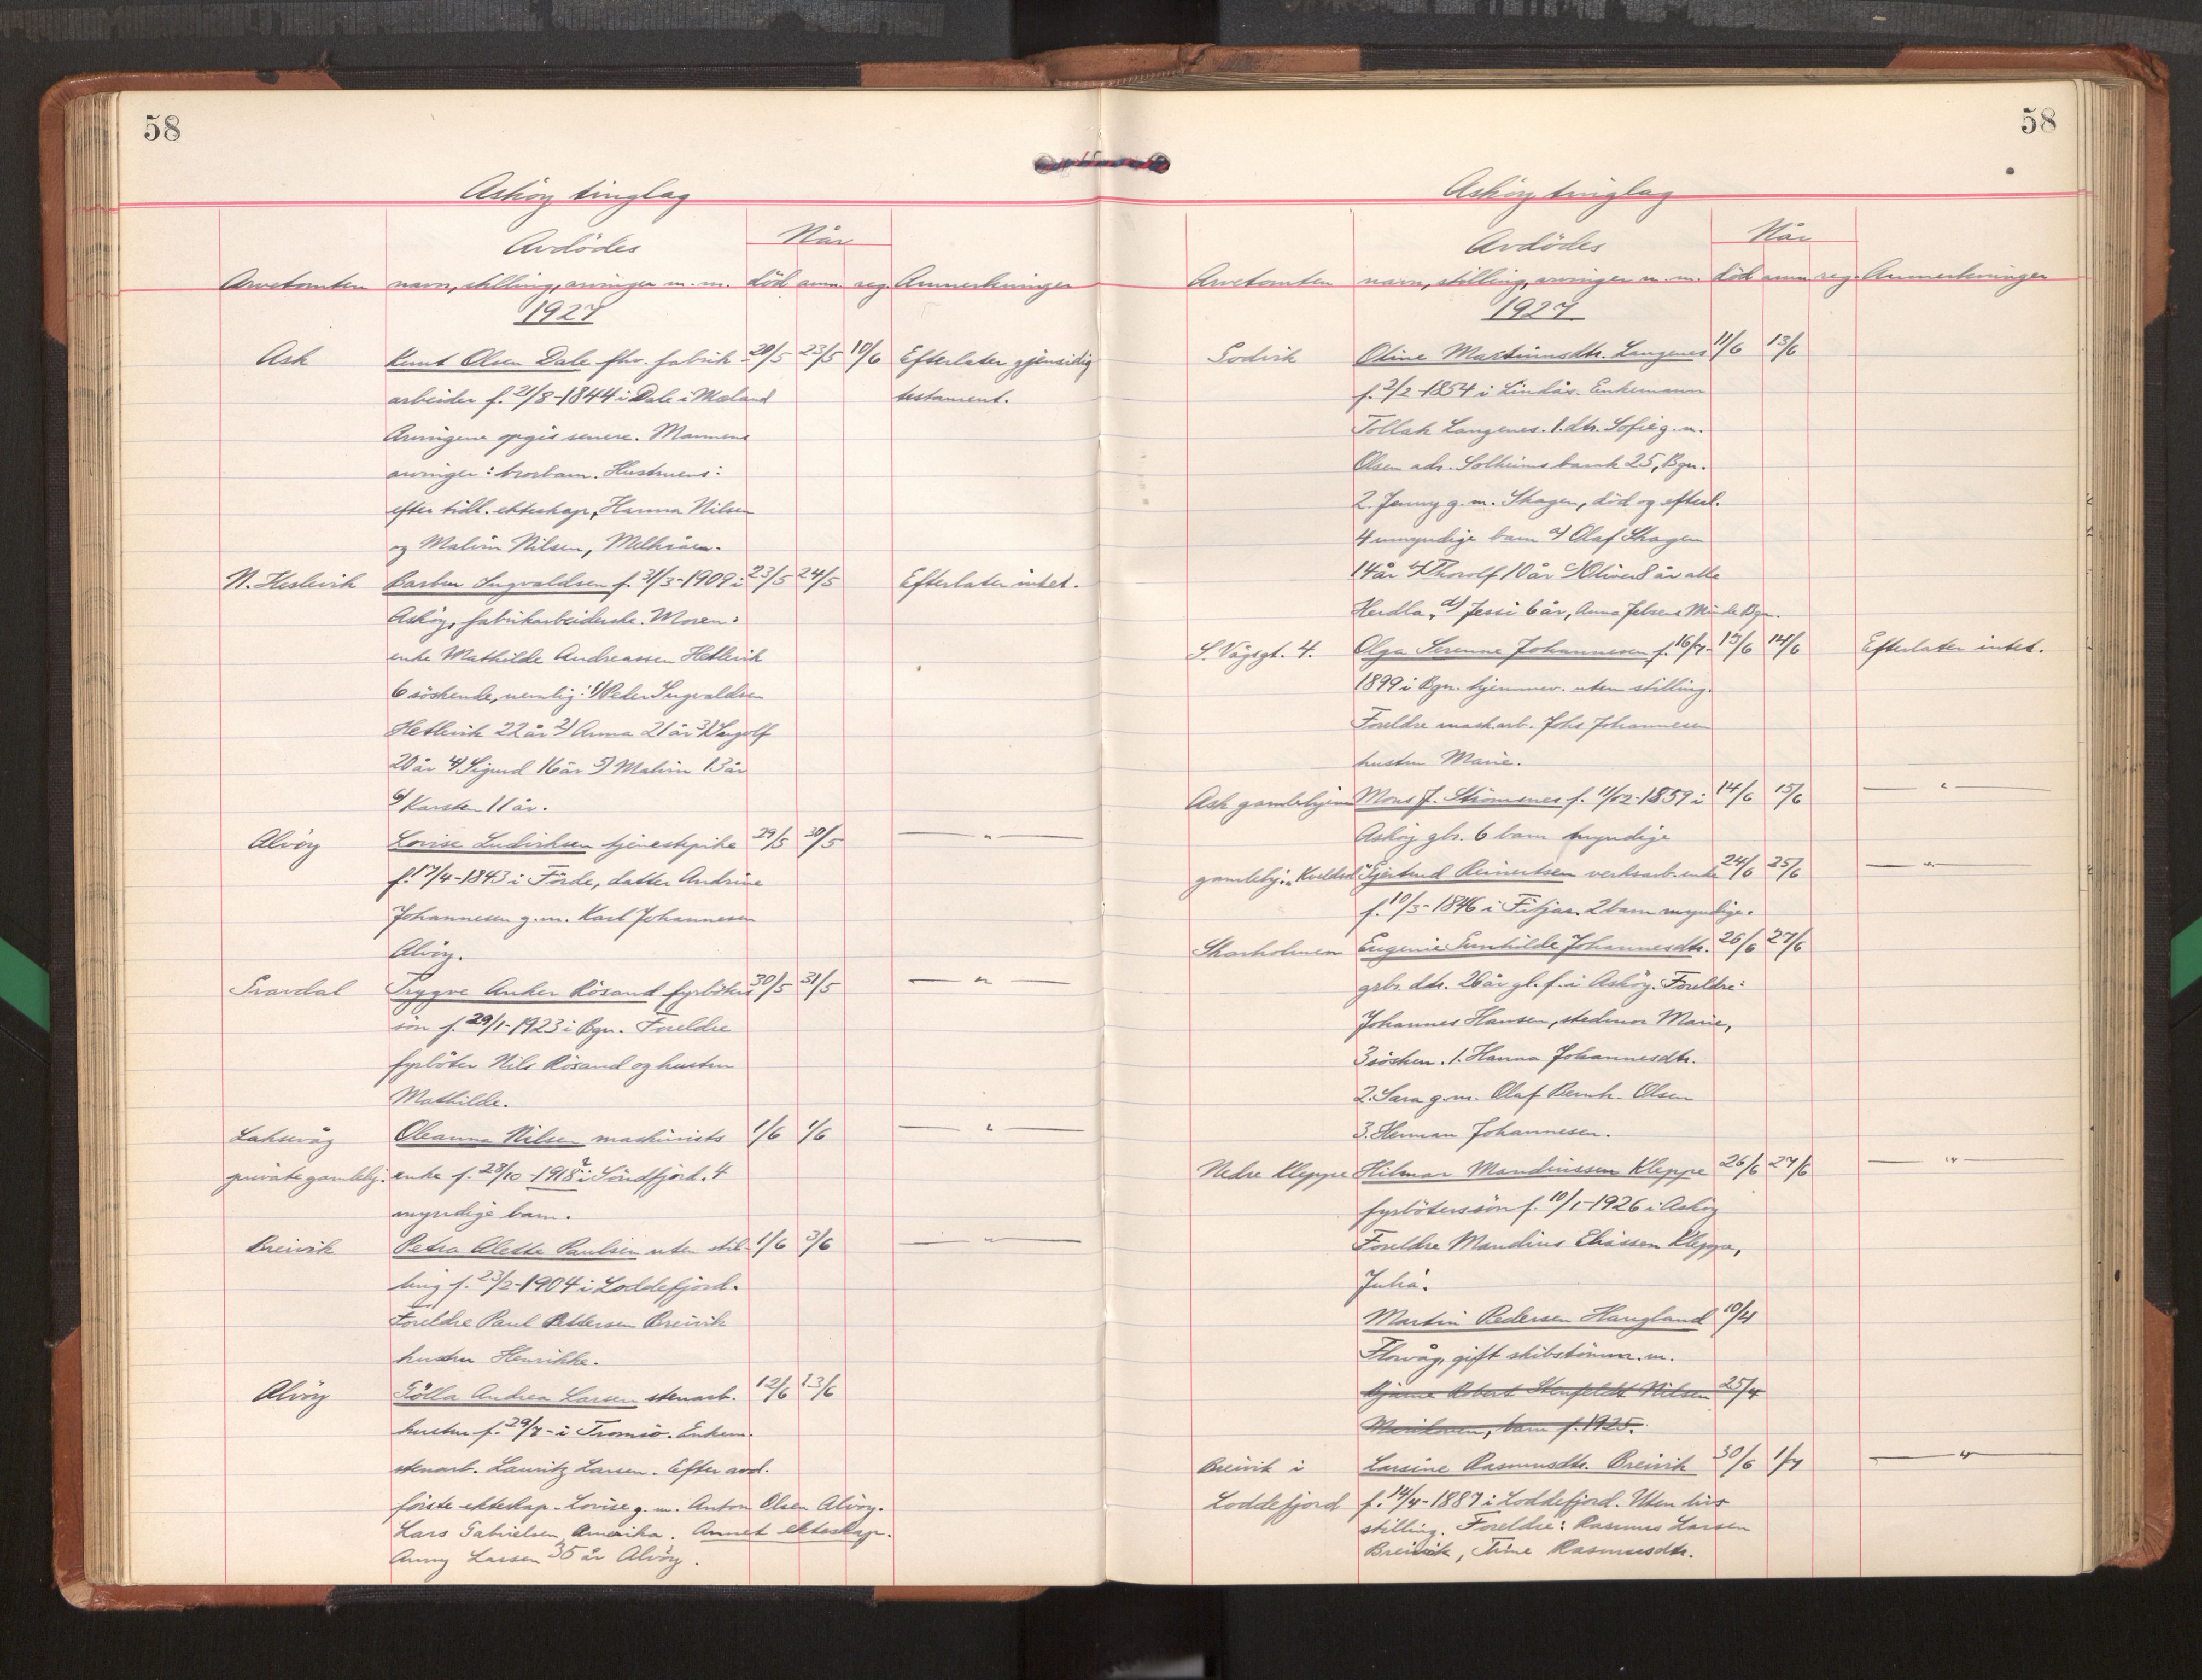 58
Asköy tinglag
Avdödes
Når
Arvetomten navn, stilling, arvinger m.m. död anm. reg. Anmerkninger
1927
Ask Knut Olsen Dale fhv. fabrik- 20/5 23/5 10/6 Efterlater gjensidig
arbeider f. 21/8-1844 i Dale i testament.
Arvingene opgis senere. Mannens
arvinger: brorbarn. Hustruens:
efter tidl. ekteskap, Hanna Nilsen
og Malvin Nilsen,
N. Heslevik Barbra Ingvaldsen f. 31/3-1909 i 23/5 24/5 Efterlater intet.
Asköy, fabrikarbeiderske. Moren:
enke Mathilde Andreassen Hetlevik
6 söskende, nemlig: 1) Peder Ingvaldsen
Hetlevik 22 år 2) Anna 21 år 3) Ingolf
20 år 4) Sigurd 16 år 5) Malvin 13 år
6) Karsten 11 år.
Alvöy Lovise Ludviksen tjenestepike 29/5 30/5 — " —
f. 17/4-1843 i Förde, datter Andrine
Johannesen g.m. Karl Johannesen
Alvöy.
Gravdal Trygve Anker Rösand fyrböters 30/5 31/5 — " —
sön f. 29/1-1923 i Bgn. Foreldre
fyrböter Nils Rösand og hustru
Mathilde.
Laksevåg Oleanna Nilsen maskinists 1/6 1/6 — " —
private gamlehj. enke f. 28/10-1918? i Söndfjord. 4
myndige barn.
Breivik Petra Alette Paulsen uten stil- 1/6 3/6 — " —
ling f. 23/2-1904 i Loddefjord.
Foreldre Paul Pettersen Breivik
hustru Henrikke.
Alvöy Andrea Larsen stenarb. 12/6 13/6
hustru f. 29/7- i Tromsö. Enkem.
stenarb. Lauritz Larsen. Efter avd.
förste ekteskap. Lovise g.m. Anton Olsen Alvöy.
Lars Gabrielsen Amerika. Annet ekteskap.
Anny Larsen 35 år Alvöy.
58
Asköy tinglag
Avdödes
Når
Arvetomten navn, stilling, arvinger m.m. död anm. reg. Anmerkninger
1927
Godvik Oline Martinusdtr. Langenes 11/6 13/6
f. 2/2-1854 i Lindås. Enkemann
Tollak Langenes. 1. dtr. Sofie g.m.
Olsen adr. Solheims bank 25, Bgn.
2. Jenny g.m. Skagen, död og efterl.
4 umyndige barn a) Olaf Skagen
14 år b) Thorolf 10 år c) Oliver 8 år alle
Herdla, d) Jessi 6 år, Anna Bgn.
S. Vågsgt. 4. Olga Serenne Johannesen f. 16/7- 13/6 14/6 Efterlater intet.
1899 i Bgn. hjemmev. uten stilling.
Foreldre mask.arb. Johs Johannesen
hustru Marie.
Ask gamlehjem Mons J. Strömsnes f. 11/12-1859 i 14/6 15/6 — " —
Asköy gbr. 6 barn myndige
gamlehj. "Kveldsol" Gjertrud Reinertsen verksarb. enke 24/6 25/6 — " —
f. 10/3-1846 i Fitjar. 2 barn myndige.
Skarholmen Eugenie Gunhilde Johannesdtr. 26/6 27/6
grbr. dtr. 26 år gl. f. i Asköy. Foreldre:
Johannes Hansen, stedmor Marie,
3 sösken. 1. Hanna Johannesdtr.
2. Sara g.m. Olaf Bernh. Olsen
3. Herman Johannesen.
Nedre Kleppe Hilmar Mandiussen Kleppe 26/6 27/6 — " —
fyrbötersön f. 10/1-1926 i Asköy
Foreldre Mandius Eliassen Kleppe,
Julia.
Martin Pedersen Haugland 10/4
Florvåg, gift skibstömm.m.
Bjarne Robert Stenfeldt Nilsen 25/4
barn f. 1925.
Breivik i Larsine Rasmusdtr. Breivik 30/6 1/7 — " —
Loddefjord f. 14/4-1887 i Loddefjord. Uten livs
stilling. Foreldre: Rasmus Larsen
Breivik, Trine Rasmusdtr.